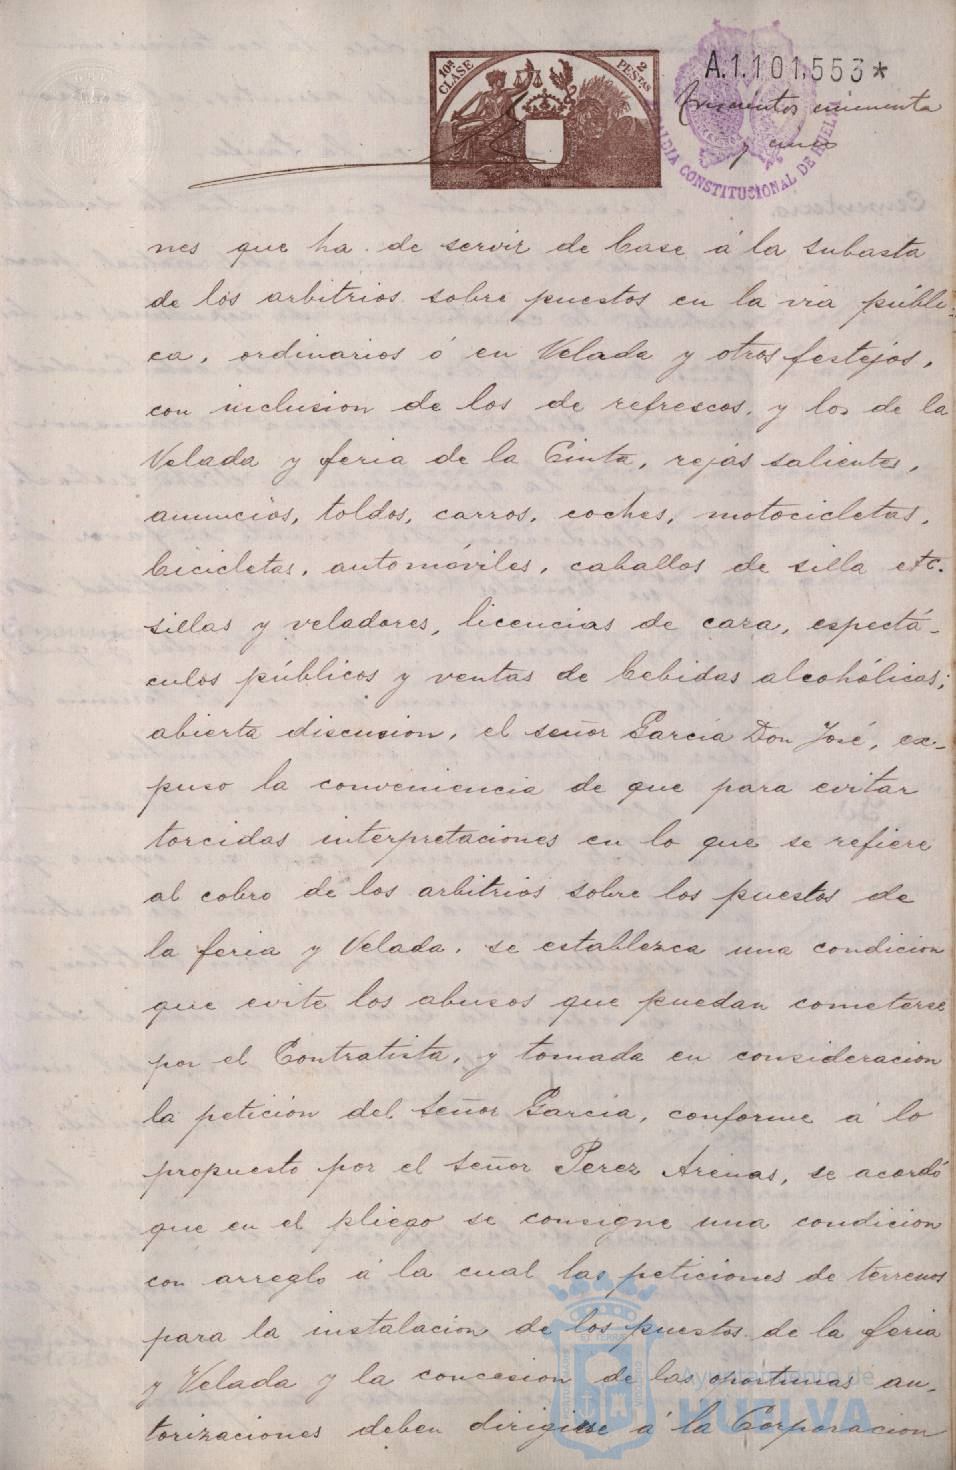 10ª CLASE
2 PESETAS
A.1.101.553*
Trescientos cincuenta
y cinco
ALCALDIA CONSTITUCIONAL DE HUELVA
nes que ha de servir de base á la subasta
de los arbitrios sobre puestos en la via públi-
ca, ordinarios ó en Velada y otros festejos,
con inclusion de los de refrescos, y los de la
Velada y feria de la Cinta, rejas salientes,
anuncios, toldos, carros, coches, motocicletas,
bicicletas, automóviles, caballos de silla etc.
sillas y veladores, licencias de caza, espectá-
culos públicos y ventas de bebidas alcohólicas;
abierta discusion, el señor García Don José, ex-
puso la conveniencia de que para evitar
torcidas interpretaciones en lo que se refiere
al cobro de los arbitrios sobre los puestos de
la feria y Velada, se establezca una condicion
que evite los abusos que puedan cometerse
por el Contratista, y tomada en consideracion
la peticion del señor García, conforme á lo
propuesto por el señor Perez Arenas, se acordó
que en el pliego se consigne una condicion
con arreglo á la cual las peticiones de terrenos
para la instalacion de los puestos de la feria
y Velada y la concesion de las oportunas au-
torizaciones deben dirigirse á la Corporacion
Ayuntamiento de
HUELVA